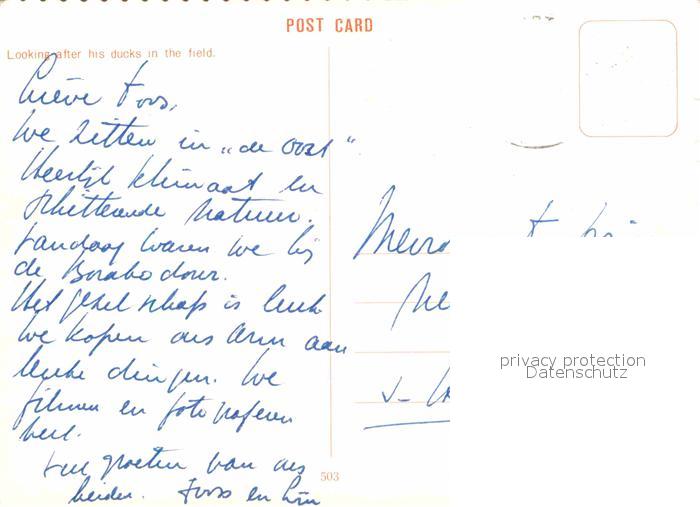 POST CARD
Looking after his ducks in the field.
Lieve Toos,
We zitten in „de Oost"
Heerlijk klimaat en
schitterende natuur.
Vandaag waren we bij
de Borabodour.
Het gezelschap is leuk
We kopen ons arm aan
leuke dingen. We
filmen en fotograferen
veel.
groeten van ons
beiden. en
503
Mevr
privacy protection
Datenschutz